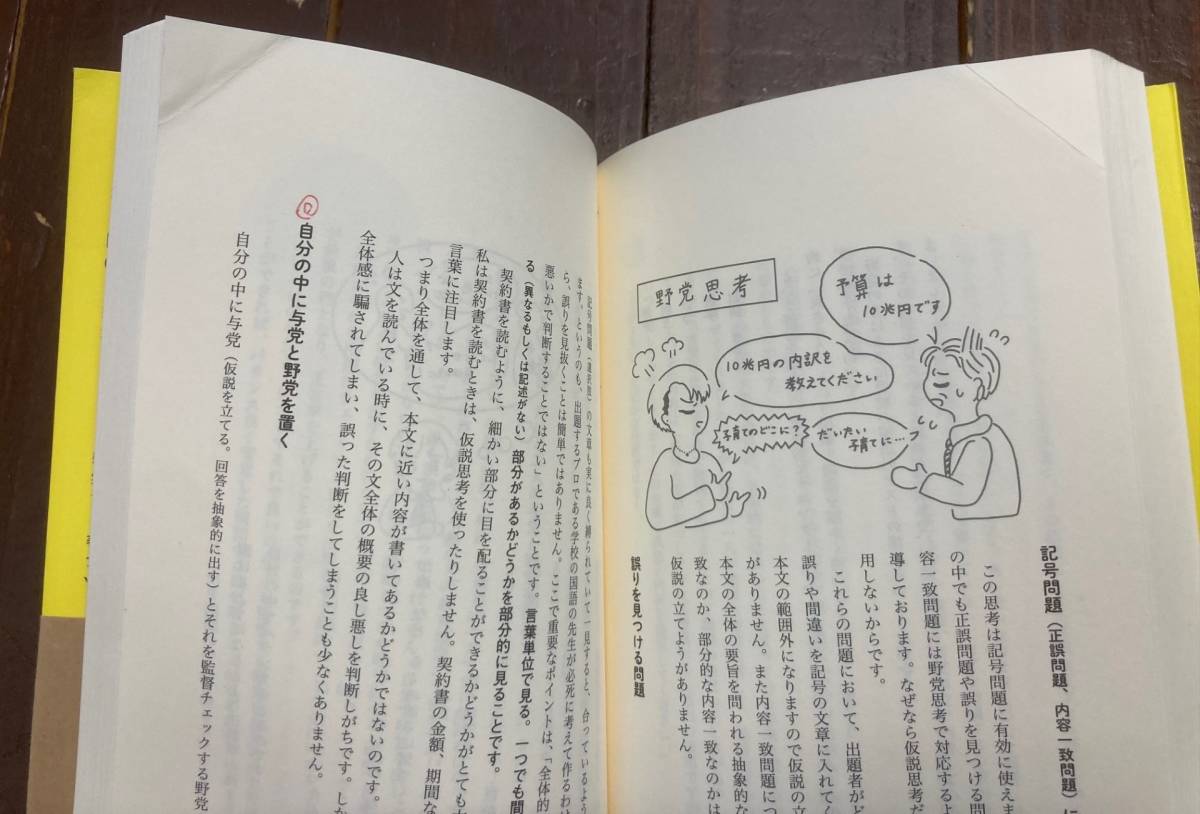 野党思考
予算は
10兆円です
10兆円の内訳を
教えてください
だいたい
子育てに…
子育てのどこに？
記号問題（正誤問題、内容一致問題）に
この思考は記号問題に有効に使えま
の中でも正誤問題や誤りを見つける問
容一致問題には野党思考で対応するよ
導しております。なぜなら仮説思考だ
用しないからです。
これらの問題において、出題者がど
誤りや間違いを記号の文章に入れてく
本文の範囲外になりますので仮説の立
がありません。また内容一致問題につ
本文の全体の要旨を問われる抽象的な
致なのか、部分的な内容一致なのかは
仮説の立てようがありません。
誤りを見つける問題
記号問題（選択肢）の文章も実に良く練られていて一見すると、合っているよう
ます。というのも、出題するプロである学校の国語の先生が必死に考えて作るわけ
ら、誤りを見抜くことは簡単ではありません。ここで重要なポイントは、「全体的
悪いかで判断することではない」ということです。言葉単位で見る。一つでも間
る（異なるもしくは記述がない）部分があるかどうかを部分的に見ることです。
契約書を読むように、細かい部分に目を配ることができるかどうかがとても大
私は契約書を読むときは、仮説思考を使ったりしません。契約書の金額、期間な
言葉に注目します。
つまり全体を通して、本文に近い内容が書いてあるかどうかではないのです。
人は文を読んでいる時に、その文全体の概要の良し悪しを判断しがちです。しか
全体感に騙されてしまい、誤った判断をしてしまうことも少なくありません。
自分の中に与党と野党を置く
自分の中に与党（仮説を立てる。回答を抽象的に出す）とそれを監督チェックする野党